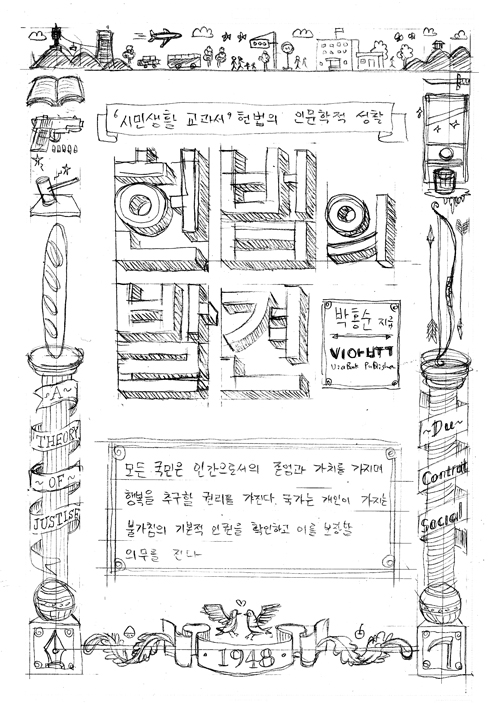 '시민생활 교과서' 헌법의 인문학적 성찰
헌법의
발견
박홍순 지음
VIABOOK
ViaBook Publisher
~A~
THEORY
~OF~
JUSTISE
~Du~
Contrat
Social
모든 국민은 인간으로서의 존엄과 가치를 가지며
행복을 추구할 권리를 가진다. 국가는 개인이 가지는
불가침의 기본적 인권을 확인하고 이를 보장할
의무를 진다
·1948·